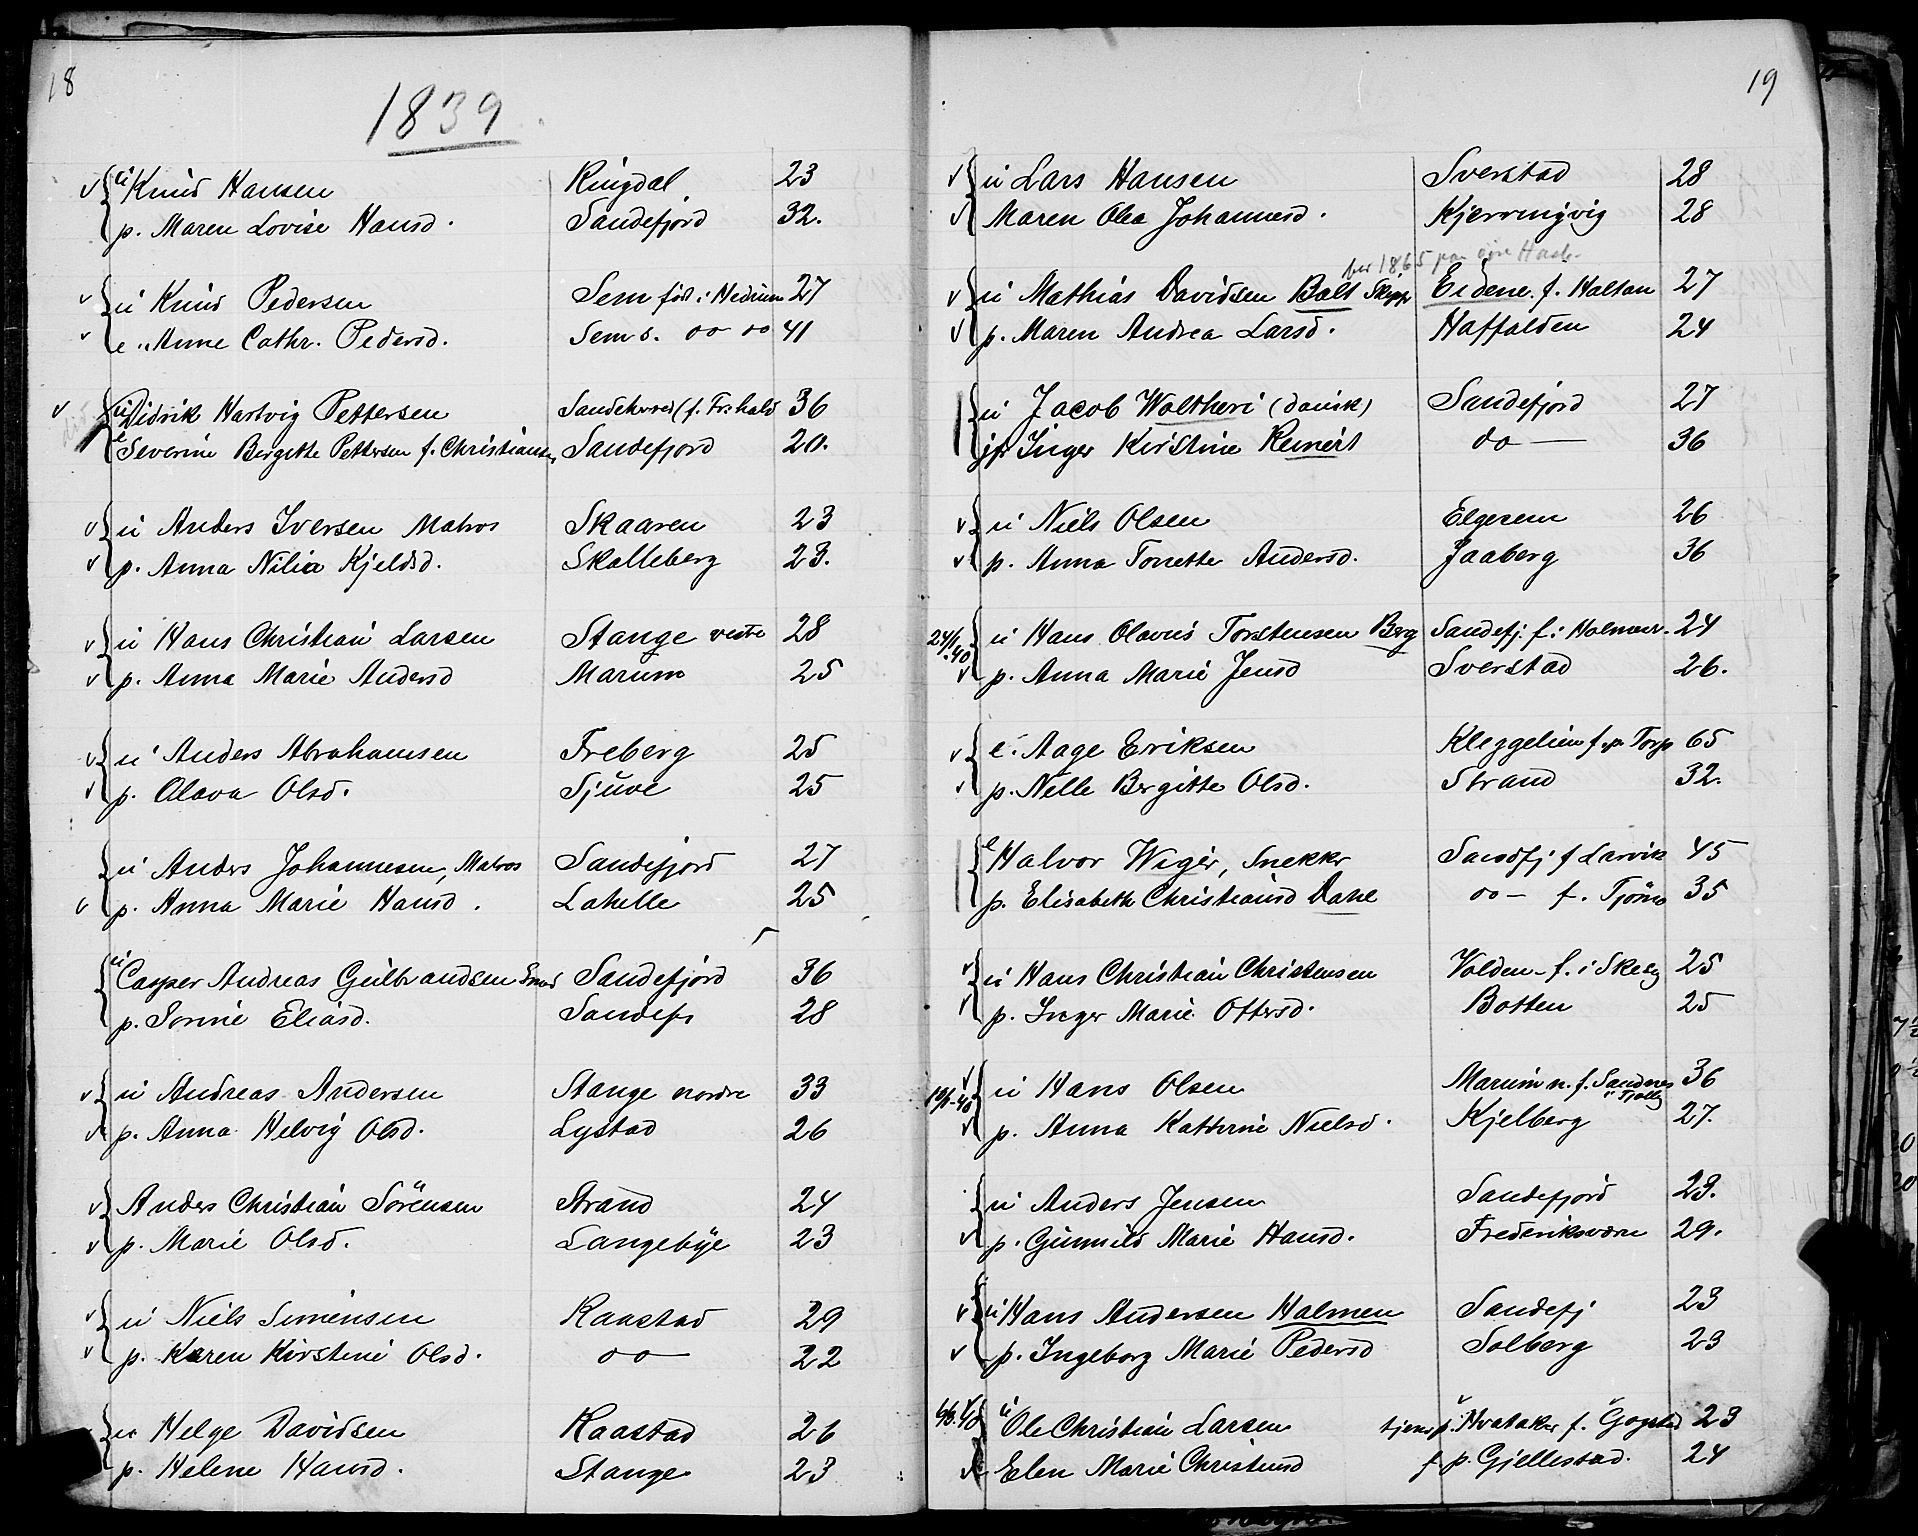 18
1839
u Knud Hansen Ringdal 23
p. Maren Lovise Hansd. Sandefjord 32.
u Knud Pedersen Sem født i Hedrum 27
e. Anne Cathr. Pedersd. Sem s. do do 41
u Didrik Hartvig Pettersen Sandeherred (f. Fr.hald 36
e Severine Bergitte Pettersen f. Christiansen Sandefjord 20.
u Anders Iversen Matros Skaaren 23
p. Anna Nilia Kjeldsd. Skalleberg 23.
u Hans Christian Larsen Stange vestre 28
p. Anna Marie Andersd Marum 25
u Anders Abrahamsen Freberg 25
p. Olava Olsd. Sjuve 25
u Anders Johannesen, Matros Sandefjord 27
p. Anna Marie Hansd. Lahelle 25
u Casper Andreas Gulbrandsen Sandefjord 36
p. Sorine Eliasd. Sandefj 28
u Andreas Andersen Stange nordre 33
p. Anna Helvig Olsd. Lystad 26
Anders Christian Sörensen Strand 24
p. Marie Olsd. Langebye 23
u Niels Simensen Raastad 29
p. Karen Kirstine Olsd. do 22
u Helge Davidsen Raastad 26
p. Helene Hansd. Stange 23
19
u Lars Hansen Sverstad 28
Maren Olea Johannesd. Kjerringvig 28
bor 1865 paa
u Mathias Davidsen Bolt Skipper Eidene. f. Haltan 27
p. Maren Andrea Larsd. Haffalden 24
u Jacob Woltheri (dansk) Sandefjord 27
jfr Inger Kirstine Reinert do 36
u Niels Olsen Elgesem 26
p. Anna Tonette Andersd. Jaaberg 36
24/1.40 u Hans Olavus Torstensen Berg Sandefj. f. i Holmestr. 24
p. Anna Marie Jensd Sverstad 26.
e. Aage Eriksen Kleggelien f. pr Torp 65
p. Nelle Bergitte Olsd. Strand 32.
e Halvor Wiger, Snekker Sandfj f Larvik 45
p. Elisabeth Christiansd Dahl do - f. Tjömö 35
u Hans Christian Christensen Volden - f. i Skeeg 25
p. Inger Marie Ottersd. Botten 25
u Hans Olsen Marum n. f. Sandnes i Tjølling 36
p. Anna Kathrine Nielsd. Kjelberg 27.
u Anders Jensen Sandefjord 23.
p. Gunnild Marie Hansd. Frederiksværn 29.
u Hans Andersen Holmen Sandefj 23
p. Ingeborg Marie Pedersd Solberg 23
u Ole Christian Larsen tjener p. Hvataker f. Gogstad 23
Elen Marie Christensd f p. Gjellestad. 24